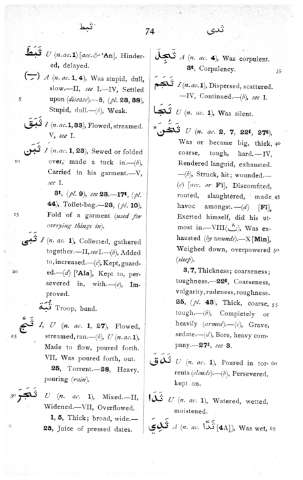 ثبط
74
ثدى
ثَبَطَ U (n. ac. 1) [acc. & 'An], Hinder-
ed, delayed.
(—) A (n. ac. 1, 4), Was stupid, dull,
slow.—II, see I.—IV, Settled
upon (disease).—5, (pl. 23, 38),
Stupid, dull.—(b), Weak.
I (n. ac. 1, 33), Flowed, streamed.
V, see I.
ثَبَنَ I (n. ac. 1, 23), Sewed or folded
over, made a tuck in.—(b),
Carried in his garment.—V,
see I.
3ᵗ, (pl. 9), see 23.—17ᵗ, (pl.
44), Toilet-bag.—23, (pl. 10),
Fold of a garment (used for
carrying things in).
ثَبَى I (n. ac. 1), Collected, gathered
together.—II, see I.—(b), Added
to, increased.—(c), Kept, guard-
ed.—(d) ['Ala], Kept to, per-
severed in, with.—(e), Im-
proved.
ثُبَة Troop, band.
ثَجَّ I, U (n. ac. 1, 27), Flowed,
streamed, ran.—(b), U (n. ac. 1),
Made to flow, poured forth.
VII, Was poured forth, out.
25, Torrent.—28, Heavy,
pouring (rain).
ثَجَرَ U (n. ac. 1), Mixed.—II,
Widened.—VII, Overflowed.
1, 5, Thick; broad, wide.—
25, Juice of pressed dates.
ثَجِلَ A (n. ac. 4), Was corpulent.
3ᵗ, Corpulency.
ثَجَمَ I (n. ac. 1), Dispersed, scattered.
—IV, Continued.—(b), see I.
U (n. ac. 1), Was silent.
ثَخُنَ U (n. ac. 2, 7, 22ᵗ, 27ᵗ),
Was or became big, thick,
coarse, tough, hard.—IV,
Rendered languid, exhausted.
—(b), Struck, hit; wounded.—
(c) [acc. or Fī], Discomfited,
routed, slaughtered, made
havoc amongst.—(d) [Fī],
Exerted himself, did his ut-
most in.—VIII, Was ex-
hausted (by wounds).—X [Min],
Weighed down, overpowered
(sleep).
3, 7, Thickness; coarseness;
toughness.—22ᵗ, Coarseness,
vulgarity, rudeness, roughness.
25, (pl. 43), Thick, coarse,
tough.—(b), Completely or
heavily (armed).—(c), Grave,
sedate.—(d), Bore, heavy com-
pany.—27ᵗ, see 3.
ثَدَقَ U (n. ac. 1), Poured in tor-
rents (clouds).—(b), Persevered,
kept on.
ثَدَا U (n. ac. 1), Watered, wetted,
moistened.
ثَدِيَ A (n. ac. [4A]), Was wet,